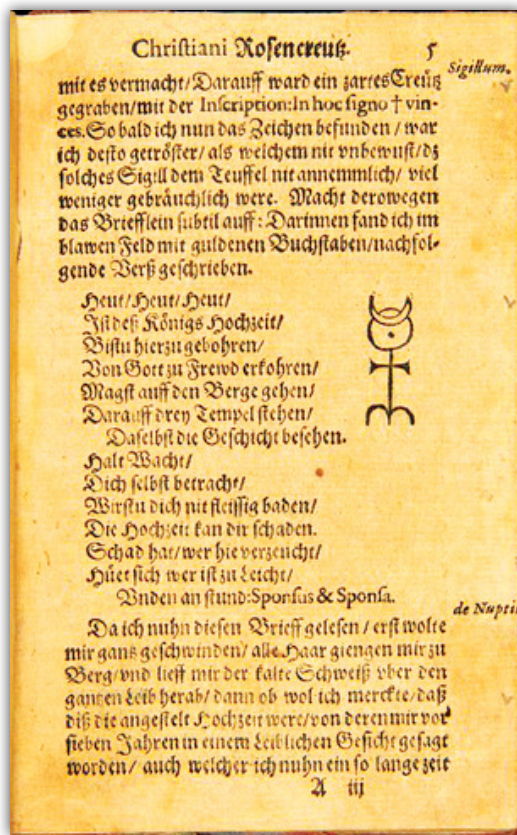 Christiani Rosencreutz. 5
Sigillum.
mit es vermacht/Darauff ward ein zartes Creutz
gegraben/mit der Inscription:In hoc signo † vin-
ces.So bald ich nun das Zeichen befunden / war
ich desto getröster/als welchem nit vnbewust/dz
solches Sigill dem Teuffel nit annemmlich/ viel
weniger gebräuchlich were. Macht derowegen
das Briefflein subtil auff: Darinnen fand ich im
blawen Feld mit guldenen Buchstaben/nachfol-
gende Verß geschrieben.
Heut/Heut/Heut/
Ist deß Königs Hochzeit/
Bistu hierzu gebohren/
Von Gott zu Frewd erkohren/
Magst auff den Berge gehen/
Darauff drey Tempel stehen/
Daselbst die Geschicht besehen.
Halt Wacht/
Dich selbst betracht/
Wirstu dich nit fleissig baden/
Die Hochzeit kan dir schaden.
Schad hat/wer hie verzeucht/
Hüet sich wer ist zu Leicht/
Vnden an stund:Sponsus & Sponsa.
de Nupti
Da ich nuhn diesen Brieff gelesen / erst wolte
mir gantz geschwinden/ alle Haar giengen mir zu
Berg/vnd lieff mir der kalte Schweiß vber den
gantzen Leib herab/ dann ob wol ich merckte/daß
diß die angestelt Hochzeit were/von deren mir vor
sieben Jahren in einem Leiblichen Gesicht gesagt
worden/ auch welcher ich nuhn ein so lange zeit
A iij